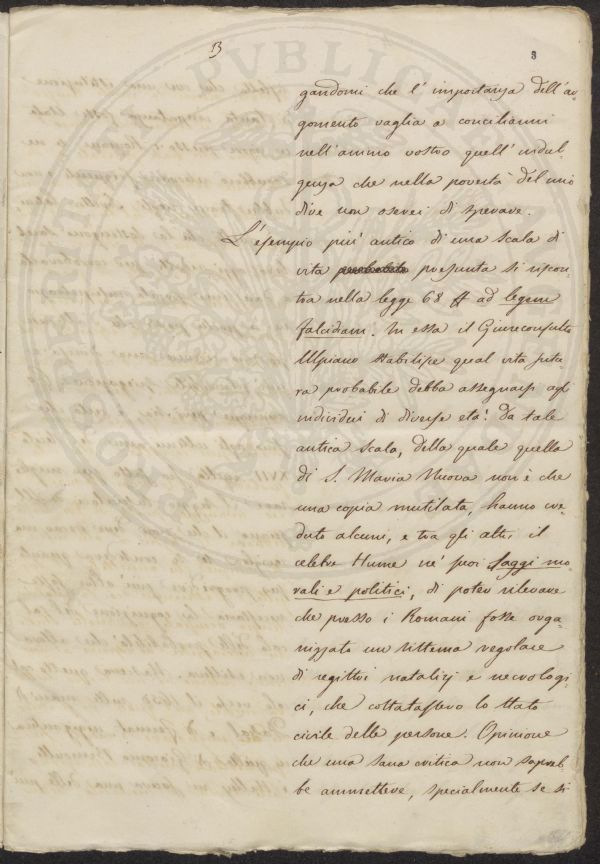 13
3
gandomi che l'importanza dell'ar=
gomento vaglia a conciliarmi
nell'animo vostro quell'indul=
genza che nella povertà del mio
dire non oserei di sperare.
L'esempio più antico di una scala di
vita presunta si riscon=
tra nella legge 68 ff ad legem
falcidiam. In essa il Giureconsulto
Ulpiano stabilisce qual vita futu=
ra probabile debba assegnarsi agli
individui di diverse età. Da tale
antica scala, della quale quella
di S. Maria Nuova non è che
una copia mutilata, hanno cre=
duto alcuni, e tra gli altri il
celebre Hume ne' suoi saggi mo=
rali e politici, di poter rilevare
che presso i Romani fosse orga=
nizzato un sistema regolare
di registri natalizj e necrologi=
ci, che constatassero lo stato
civile delle persone. Opinione
che una sana critica non sapreb=
be ammettere, specialmente se si